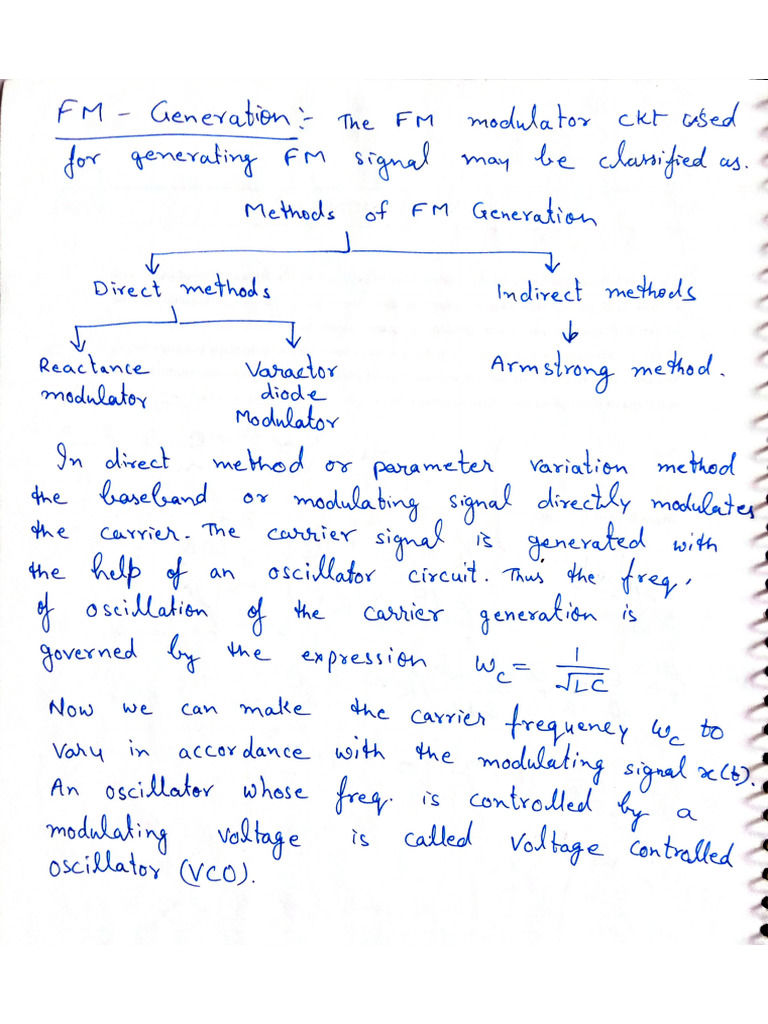 FM - Generation:- The FM modulator ckt used
for generating FM signal may be classified as.
Methods of FM Generation
Direct methods Indirect methods
Reactance modulator Varactor diode Modulator Armstrong method.
In direct method or parameter variation method
the baseband or modulating signal directly modulates
the carrier. The carrier signal is generated with
the help of an oscillator circuit. Thus the freq.
of oscillation of the carrier generation is
governed by the expression ωc = 1/√LC
Now we can make the carrier frequency ωc to
vary in accordance with the modulating signal x(t).
An oscillator whose freq. is controlled by a
modulating voltage is called voltage controlled
oscillator (VCO).